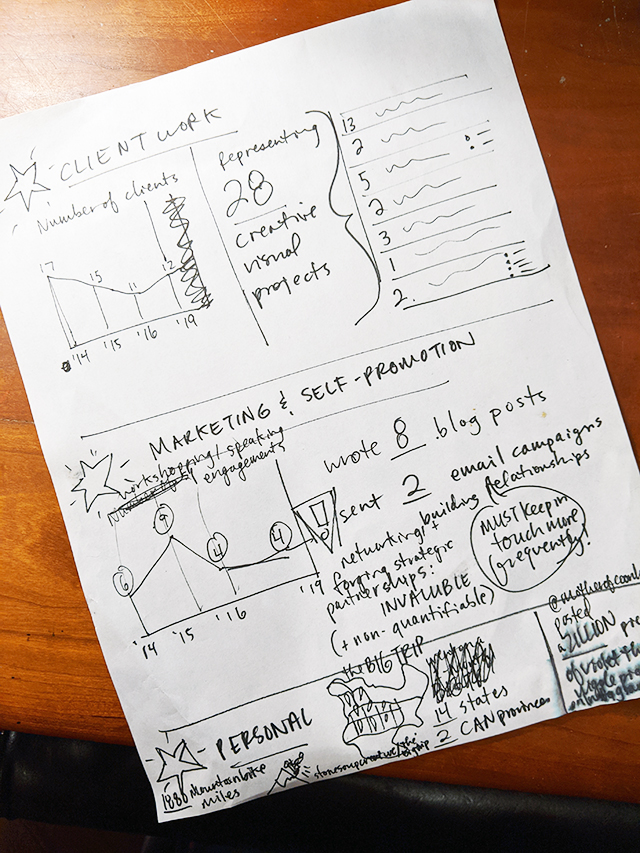 CLIENT WORK
Number of clients
17
15
11
12
'14
'15
'16
'19
Representing
28
creative
visual
projects
13
2
5
2
3
1
2
MARKETING & SELF-PROMOTION
workshopping/speaking
engagements
6
9
4
4
!
'14
'15
'16
'19
wrote 8 blog posts
sent 2 email campaigns
networking + building relationships
forging strategic
partnerships:
INVALUABLE
(+ non-quantifiable)
MUST keep in
touch more
frequently!
PERSONAL
1880 Mountain bike
miles
the BIG TRIP
14 states
2 CAN provinces
posted
a ZILLION
of violet